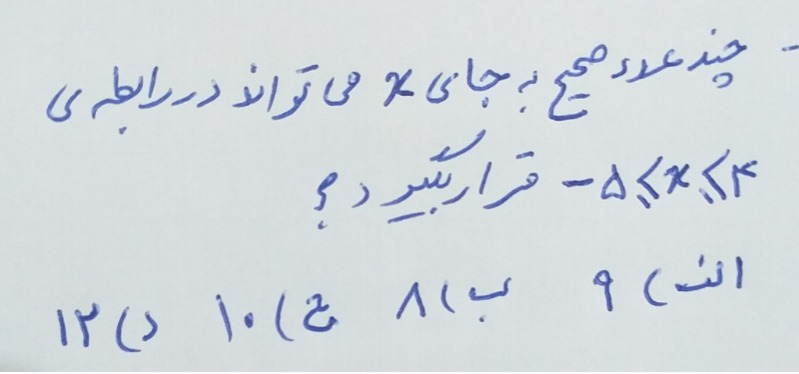 - چند عدد صحیح به جای x می تواند در رابطه ی
-۵⩽x⩽۴ قرار بگیرد؟
الف) ۹ ب) ۸ ج) ۱۰ د) ۱۲